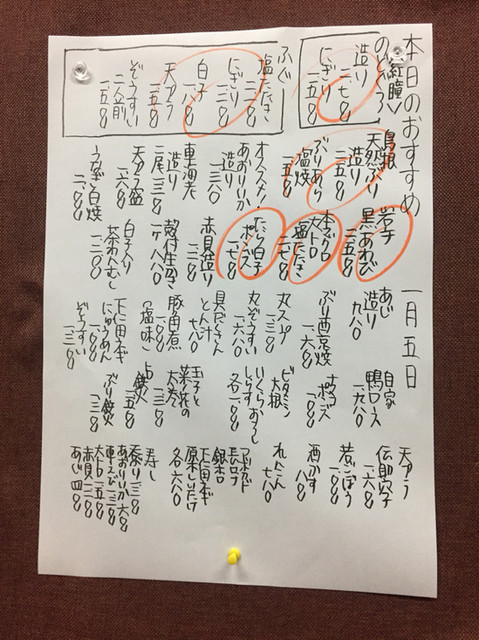 本日のおすすめ 一月五日
紅瞳
のどぐろ
造り
二、七〇〇
にぎり
一、五〇〇
ふぐ
塩たたき
二、二〇〇
にぎり
一、二〇〇
白子
一、八〇〇
天プラ
一、五〇〇
ぞうすい
二人前
一、五〇〇
島根
天然ぶり
造り
二、五〇〇
ぶりあら
塩焼
一、五〇〇
オススメ!
あおりいか
造り
一、三八〇
車海老
造り
二尾 三、〇〇
天プラ盛
一、六〇〇
うなぎ白焼
二、一〇〇
岩手
黒あわび
二、五〇〇
本マグロ
大トロ
塩たたき
二、七〇〇
たら白子
ポンズ
一、七〇〇
赤貝造り
殻付生がき
一ケ 八〇〇
白子入り
茶わんむし
一、二〇〇
あじ
造り
九八〇
ぶり西京焼
一、六〇〇
丸スープ
一、三〇〇
丸ぞうすい
一、六〇〇
具だくさん
とん汁
七八〇
豚角煮
(塩味)
一、一〇〇
下仁田ネギ
にゅうめん
一、一〇〇
ぞうすい
一、三〇〇
自家
鴨ロース
一、九八〇
ポンズ
一、一〇〇
ビタミン
大根
いくらおろし
しらすおろし
各一、一〇〇
玉子と
菜花の
鉄火
一、五〇〇
ぶり鉄火
一、三〇〇
天プラ
伝助穴子
一、六〇〇
若ごぼう
一、一〇〇
酒かす
八〇〇
れんこん
七八〇
アボカド
モロッコ
銀杏
下仁田ネギ
原木しいたけ
各 六八〇
寿し
あおりいか 六〇〇
大トロ 一、五〇〇
赤貝 一、二〇〇
あじ 四〇〇